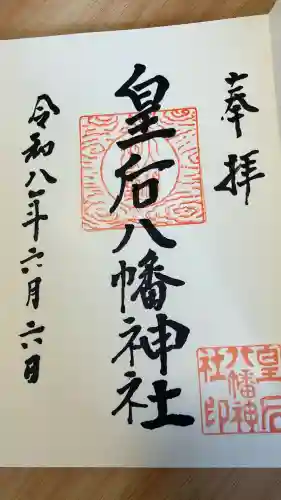 奉拝
皇后八幡神社
令和八年六月六日
皇后
八幡神
社印